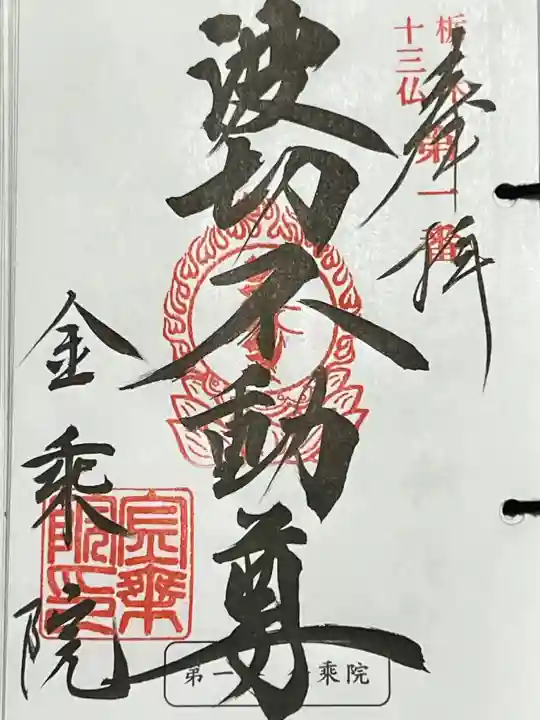 奉拝
栃木
十三仏
第一番
波切不動尊
金乗院
第一 乗院